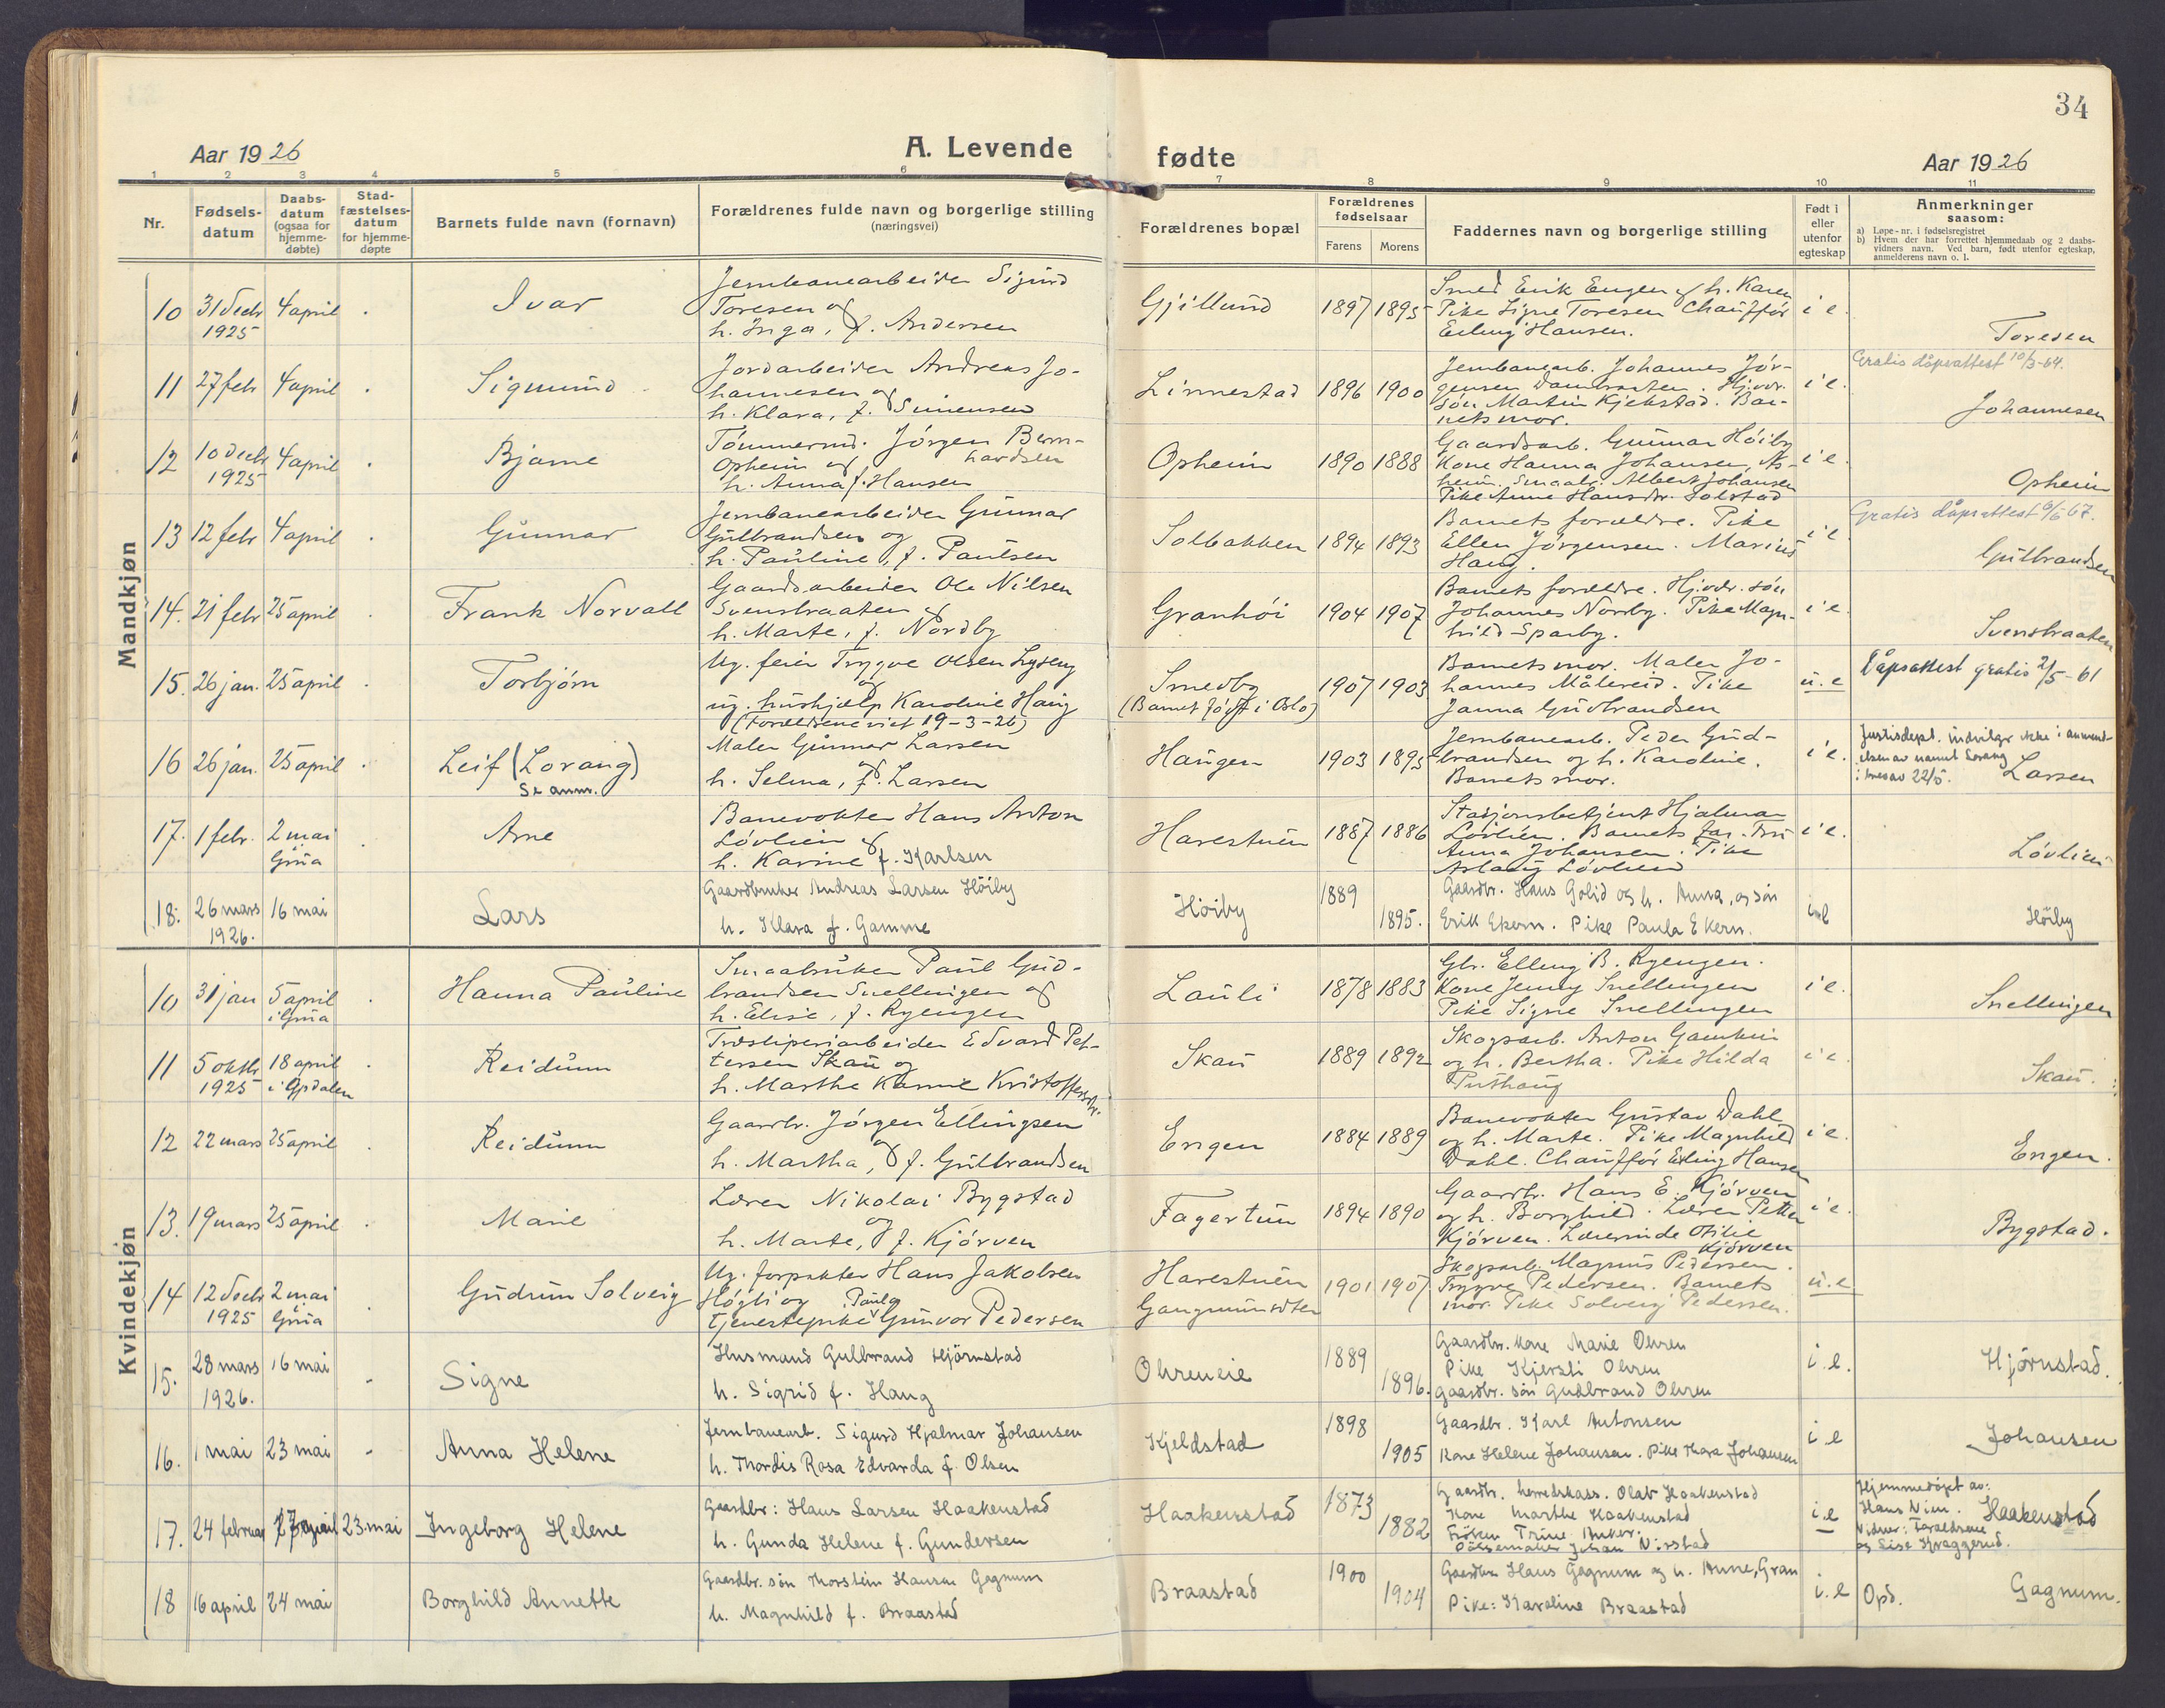 34
Aar 1926
A. Levende
fødte
Aar 1926
1 2 3 4 5 6 7 8 9 10 11
Nr.
Fødsels-
datum
Daabs-
datum
(ogsaa for
hjemme-
døbte)
Stad-
fæstelses-
datum
for hjemme-
døpte
Barnets fulde navn (fornavn)
Forældrenes fulde navn og borgerlige stilling
(næringsvei)
Forældrenes bopæl
Forældrenes
fødselsaar
Farens Morens
Faddernes navn og borgerlige stilling
Født i
eller
utenfor
egteskap
Anmerkninger
saasom:
a) Løpe-nr. i fødselsregistret
b) Hvem der har forrettet hjemmedaab og 2 daabs-
vidners navn. Ved barn, født utenfor egteskap,
anmelderens navn o. l.
Mandkjøn
10 31 decbr 1925 4 april Ivar
Jernbanearbeider Sigurd
Toresen og
h. Inga, f. Andersen
Gjillund 1897 1895
Smed Erik Engen og h. Karen
Pike Signe Toresen Chauffør
Erling Hansen.
i e.
Toresen
11 27 febr 4 april Sigmund
Jordarbeider Andreas Jo-
hannesen og
h. Klara, f. Simensen
Linnestad 1896 1900
Jernbanearb. Johannes Jør-
gensen Dambraaten. Hj.vdr.
søn Martin Kjekstad. Bar-
nets mor.
i e.
Gratis dåpsattest 10/3-64.
Johannesen
12 10 decbr 1925 4 april Bjarne
Tømmermd. Jørgen Bern-
hardsen
Opheim og
h. Anna f. Hansen
Opheim 1890 1888
Gaardsarb. Gunnar Høiby
Kone Hanna Johansen, As-
heim. Smaabr. Albert Johansen
Pike Anne Hansdtr. Solstad
i e.
Opheim
13 12 febr 4 april Gunnar
Jernbanearbeider Gunnar
Gulbrandsen og
h. Pauline, f. Paulsen
Solbakken 1894 1893
Barnets forældre. Pike
Ellen Jørgensen. Marius
Haug.
i e
Gratis dåpsattest 6/6 67.
Gulbrandsen
14. 21 febr 25 april Frank Norvall
Gaardsarbeider Ole Nilsen
Svenstraaten og
h. Marte, f. Nordby
Granhøi 1904 1907
Barnets forældre. Hj.vdr. søn
Johannes Nordby. Pike Magn-
hild Sparby.
i e.
Svenstraaten
15. 26 jan. 25 april Torbjørn
Ug. feier Trygve Olsen Lyseng
og
ug. hushjælp Karoline Haug
(Forældrene viet 19-3-26)
Smedby
(Barnet født i Oslo)
1907 1903
Barnets mor. Maler Jo-
hannes Målereid. Pike
Janna Gudbrandsen
u. e
Dåpsattest gratis 2/5-61
16 26 jan. 25 april Leif (Lorang)
Se anm.
Maler Gunnar Larsen
og
h. Selma, f. Larsen
Haugen 1903 1895
Jernbanearb. Peder Gud-
brandsen og h. Karoline.
Barnets mor.
i e.
Justisdept. indvilger ikke i anvend-
elsen av navnet Lorang
i brev av 22/5.
Larsen
17. 1 febr. 2 mai i Grua Arne
Banevokter Hans Anton
Løvlien og
h. Karine f. Karlsen
Harestuen 1887 1886
Stasjonsbetjent Hjalmar
Løvlien. Barnets far. Fru
Anna Johansen. Pike
Aslaug Løvlien
i e.
Løvlien
18. 26 mars 1926. 16 mai Lars
Gaardbruker Andreas Larsen Höiby
h. Klara f. Gamme
Höiby 1889 1895.
Gaardbr. Hans Golid og h. Anna, og søn
Erik Ekern. Pike Paula Ekern.
i e
Höiby
Kvindekjøn
10 31 jan 5 april i Grua Hanna Pauline
Smaabruker Paul Gud-
brandsen Snellingen og
h. Elise, f. Ryengen
Lauli 1878 1883
Gbr. Elling B. Ryengen.
Kone Jenny Snellingen
Pike Signe Snellingen
i e.
Snellingen
11 5 oktbr 1925 18 april i Opdalen Reidunn
Træsliperiarbeider Edvard Pet-
tersen Skau og
h. Marthe Karine Kristoffersdtr.
Skau 1889 1892
Skogsarb. Anton Gamkin
og h. Bertha. Pike Hilda
Puthaug
i e.
Skau.
12 22 mars 25 april Reidunn
Gaardbr. Jørgen Ellingsen
og
h. Martha, f. Gulbrandsen
Engen 1884 1889
Banevokter Gustav Dahl
og h. Marte. Pike Magnhild
Dahl. Chauffør Erling Hansen
i e.
Engen.
13. 19 mars 25 april Marie
Lærer Nikolai Bygstad
og
h. Marte, f. Kjørven
Fagertun 1894 1890
Gaardbr. Hans E. Kjørven
og h. Borghild. Lærer Petter
Kjørven. Lærerinde Otilie
Kjørven
i e.
Bygstad.
14 12 decbr 1925 2 mai i Grua Gudrun Solveig
Ug. forpakter Hans Jakobsen
Høgli og Paula
tjenestepike Gunvor Pedersen
Harestuen
Gangmundsdter
1901 1907
Skogsarb. Magnus Pedersen.
Trygve Pedersen. Barnets
mor. Pike Solveig Pedersen.
u. e
15. 28 mars 1926. 16 mai Signe
Husmand Gulbrand Hjörnstad
h. Sigrid f. Haug
Ohreneie 1889 1896.
Gaardbr. kone Marie Ohren
Pike Kjersti Ohren
gaardbr. søn Gudbrand Ohren
i. e.
Hjörnstad.
16. 1 mai 23 mai Anna Helene
Jernbanearb. Sigurd Hjalmar Johansen
h. Thordis Rosa Edvarda f. Olsen
Kjeldstad 1898 1905
Gaardbr. Karl Antonsen
Kone Helene Johansen. Pike Thora Johansen
i e
Johansen
17. 24 februar 17 april 23. mai Ingeborg Helene
Gaardbr: Hans Larsen Haakenstad
h. Gunda Helene f. Gundersen
Haakenstad 1873 1882
Gaardbr. herredskass. Olav Haakenstad
Kone Marthe Haakenstad
Frøken Trine Anker.
Johan Nirstad
i. e
Hjemmedöpt av:
Hans Nien.
Vidner: Foreldrene
og Lise Kraggerud.
Haakenstad
18 16 april 24 mai Borghild Annette
Gaardbr. søn Thorstein Hansen Gagnum
h. Magnhild f. Braastad
Braastad 1900 1904
Gaardbr Hans Gagnum og h. Anne, Gran
Pike: Karoline Braastad
i. e
Opd.
Gagnum.